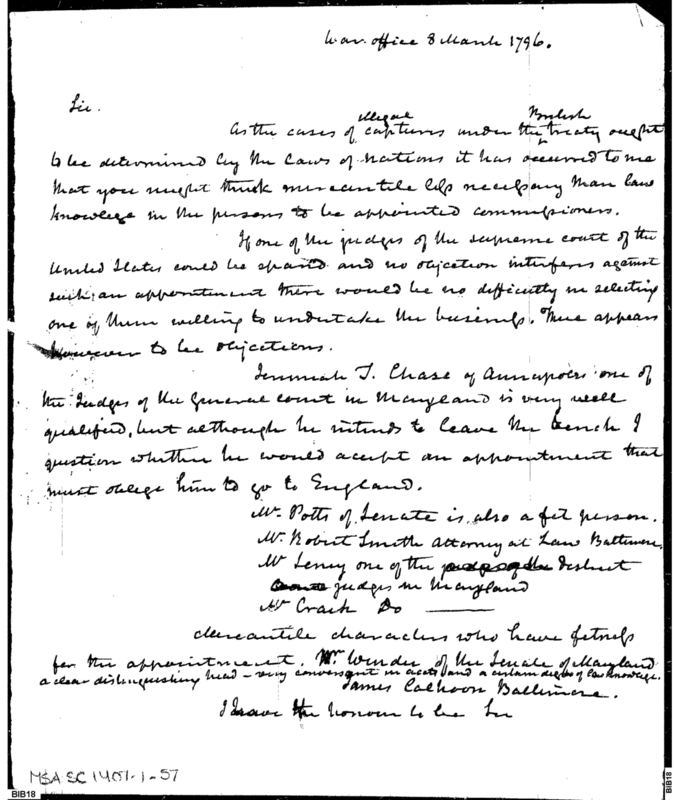 War office 8 March 1796.
Sir.
As the cases of illegal captures under the British treaty ought
to be determined by the laws of nations it has occurred to me
that you might think mercantile less necessary than law
knowlege in the persons to be appointed commissioners.
If one of the judges of the supreme court of the
United States could be spared and no objection interferes against
such an appointment there would be no difficulty in selecting
one of them willing to undertake the business. There appears
however to be objections.
Jeremiah T. Chase of Annapolis one of
the Judges of the General court in Maryland is very well
qualified, but although he intends to leave the bench I
question whether he would accept an appointment that
must oblige him to go to England.
Mr. Potts of Senate is also a fit person.
Mr. Robert Smith Attorney at Law Baltimore,
Mr Seney one of the judges of the district
judges in Maryland
Mr Craik Do
Mercantile characters who have fitness
for the appointment. Mr. Winder of the Senate of Maryland
a clear distinguishing head - very conversant in accts and a certain degree of law knowlege.
James Calhoun Baltimore.
I have the honour to be Sir
MSA SC 1401-1-57
BIB18
BIB18